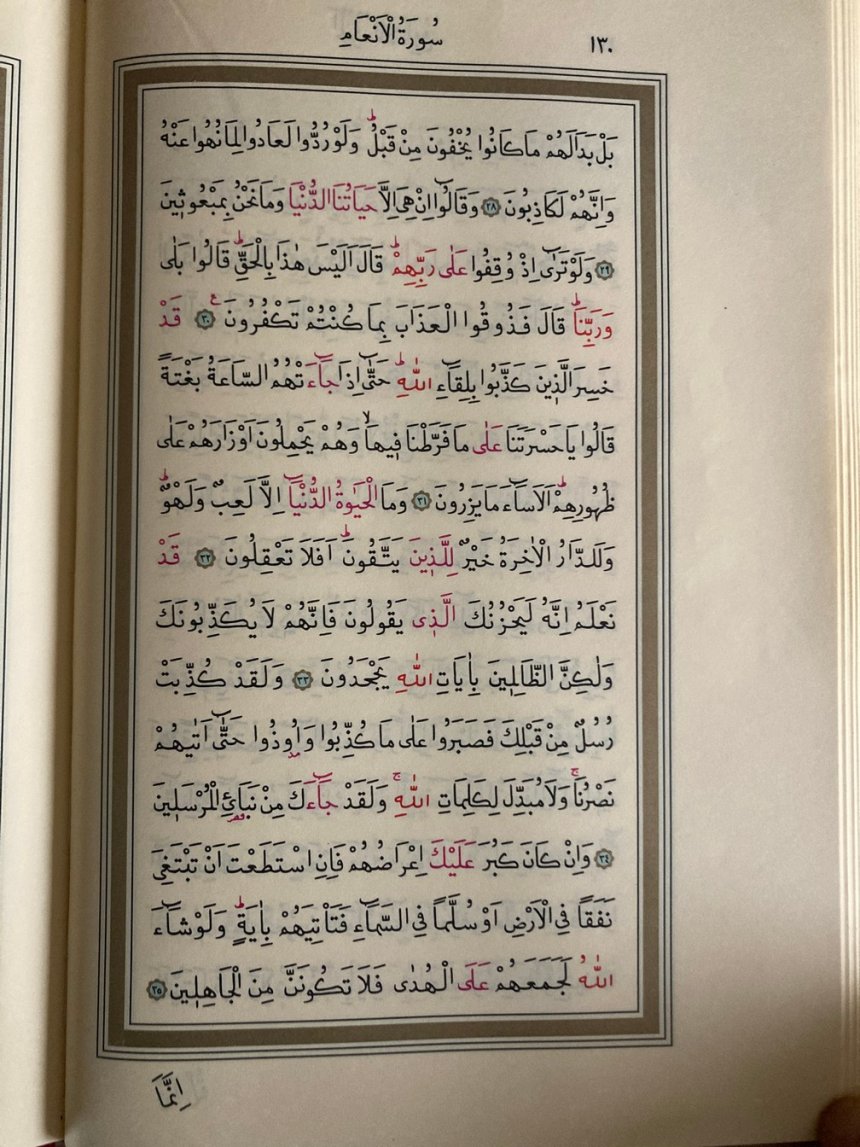 سُورَةُ الْاَنْعَامِ
١٣٠
بَلْ بَدَا لَهُمْ مَا كَانُوا يُخْفُونَ مِنْ قَبْلُۜ وَلَوْ رُدُّوا لَعَادُوا لِمَا نُهُوا عَنْهُ
وَاِنَّهُمْ لَكَاذِبُونَ ﴿٢٨﴾ وَقَالُٓوا اِنْ هِيَ اِلَّا حَيَاتُنَا الدُّنْيَا وَمَا نَحْنُ بِمَبْعُوثٖينَ
﴿٢٩﴾ وَلَوْ تَرٰٓى اِذْ وُقِفُوا عَلٰى رَبِّهِمْۜ قَالَ اَلَيْسَ هٰذَا بِالْحَقِّۜ قَالُوا بَلٰى
وَرَبِّنَاۜ قَالَ فَذُوقُوا الْعَذَابَ بِمَا كُنْتُمْ تَكْفُرُونَ ﴿٣٠﴾ قَدْ
خَسِرَ الَّذٖينَ كَذَّبُوا بِلِقَٓاءِ اللّٰهِۜ حَتّٰٓى اِذَا جَٓاءَتْهُمُ السَّاعَةُ بَغْتَةً
قَالُوا يَا حَسْرَتَنَا عَلٰى مَا فَرَّطْنَا فٖيهَاۙ وَهُمْ يَحْمِلُونَ اَوْزَارَهُمْ عَلٰى
ظُهُورِهِمْۜ اَلَا سَٓاءَ مَا يَزِرُونَ ﴿٣١﴾ وَمَا الْحَيٰوةُ الدُّنْيَٓا اِلَّا لَعِبٌ وَلَهْوٌۜ
وَلَلدَّارُ الْاٰخِرَةُ خَيْرٌ لِلَّذٖينَ يَتَّقُونَۜ اَفَلَا تَعْقِلُونَ ﴿٣٢﴾ قَدْ
نَعْلَمُ اِنَّهُ لَيَحْزُنُكَ الَّذٖى يَقُولُونَ فَاِنَّهُمْ لَا يُكَذِّبُونَكَ
وَلٰكِنَّ الظَّالِمٖينَ بِاٰيَاتِ اللّٰهِ يَجْحَدُونَ ﴿٣٣﴾ وَلَقَدْ كُذِّبَتْ
رُسُلٌ مِنْ قَبْلِكَ فَصَبَرُوا عَلٰى مَا كُذِّبُوا وَاُوذُوا حَتّٰٓى اَتٰيهُمْ
نَصْرُنَاۚ وَلَا مُبَدِّلَ لِكَلِمَاتِ اللّٰهِۚ وَلَقَدْ جَٓاءَكَ مِنْ نَبَائِ الْمُرْسَلٖينَ
﴿٣٤﴾ وَاِنْ كَانَ كَبُرَ عَلَيْكَ اِعْرَاضُهُمْ فَاِنِ اسْتَطَعْتَ اَنْ تَبْتَغِيَ
نَفَقًا فِي الْاَرْضِ اَوْ سُلَّمًا فِي السَّمَٓاءِ فَتَأْتِيَهُمْ بِاٰيَةٍۜ وَلَوْ شَٓاءَ
اللّٰهُ لَجَمَعَهُمْ عَلَى الْهُدٰى فَلَا تَكُونَنَّ مِنَ الْجَاهِلٖينَ ﴿٣٥﴾
اِنَّمَا